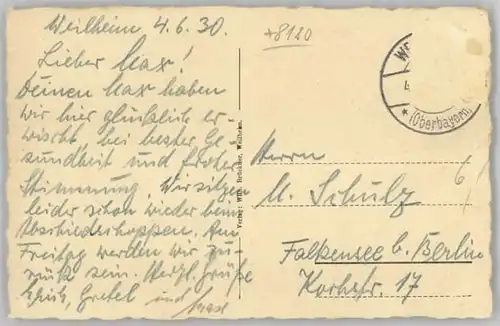 Weilheim 4.6.30.
Lieber Max!
Deinen Max haben
wir hier glücklich er-
wischt, bei bester Ge-
sundheit und froher
Stimmung. Wir sitzen
leider schon wieder beim
Abschiedsschoppen. Am
Freitag werden wir zu-
rück sein. Herzl. Grüße
Gretel und Max
*8120
Verlag: Weilheim.
WE
(Oberbayern)
Herrn
M. Schulz
Falkensee b. Berlin
Kochstr. 17
6